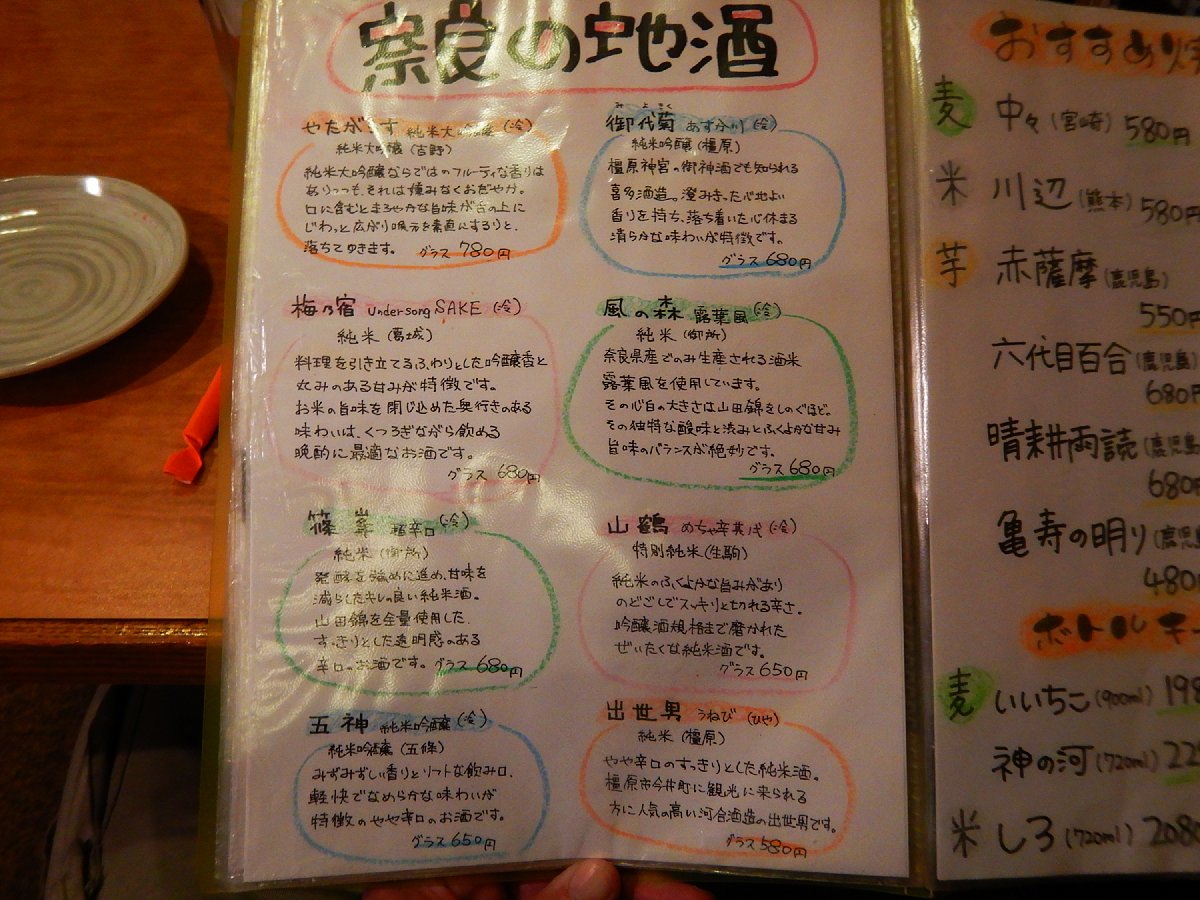 奈良の地酒
やたがらす 純米大吟醸 (冷)
純米大吟醸(吉野)
純米大吟醸ならではのフルーティな香りは
ありつつも、それは慎みなくおだやか。
口に含むとまろやかな旨味が舌の上に
じわっと広がり喉元を素直にするりと、
落ちてゆきます。 グラス 780円
みよきく
御代菊 あすか川 (冷)
純米吟醸(橿原)
橿原神宮の御神酒でも知られる
喜多酒造。澄みきった心地よい
香りを持ち、落ち着いた心休まる
清らかな味わいが特徴です。
グラス 680円
梅乃宿 Undersong SAKE (冷)
純米(葛城)
料理を引き立てるふわりとした吟醸香と
丸みのある甘みが特徴です。
お米の旨味を閉じ込めた奥行きのある
味わいは、くつろぎながら飲める
晩酌に最適なお酒です。
グラス 680円
風の森 露葉風 (冷)
純米(御所)
奈良県産でのみ生産される酒米
露葉風を使用しています。
その心白の大きさは山田錦をしのぐほど。
その独特な酸味と渋みとふくよかな甘み
旨味のバランスが絶妙です。
グラス 680円
篠峯 超辛口 (冷)
純米(御所)
発酵を強めに進め、甘味を
減らしたキレの良い純米酒。
山田錦を全量使用した、
すっきりとした透明感のある
辛口のお酒です。グラス 680円
山鶴 めちゃ辛其ノ弐 (冷)
特別純米(生駒)
純米のふくよかな旨みがあり
のどごしでスッキリと切れる辛さ。
吟醸酒規格まで磨かれた
ぜいたくな純米酒です。
グラス 650円
五神 純米吟醸 (冷)
純米吟醸(五條)
みずみずしい香りとソフトな飲み口、
軽快でなめらかな味わいが
特徴のやや辛口のお酒です。
グラス 650円
出世男 うねび (ひや)
純米(橿原)
やや辛口のすっきりとした純米酒。
橿原市今井町に観光に来られる
方に人気の高い河合酒造の出世男です。
グラス 580円
おすすめ焼
麦 中々(宮崎) 580円
米 川辺(熊本) 580円
芋 赤薩摩(鹿児島)
550円
六代目百合(鹿児島)
680円
晴耕雨読(鹿児島
680円
亀寿の明り(鹿児島
480円
ボトルキ
麦 いいちこ(900ml) 198
神の河(720ml) 22
米 しろ(720ml) 208